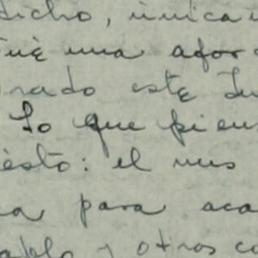 dicho, única
fué una afor
rado este
Lo que pien
ésto: el mus
a para aca
y otros co